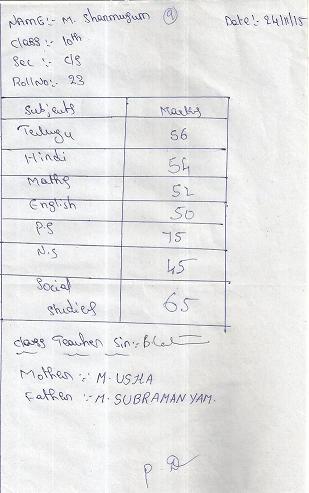 NAME:- M. Shanmugum 9 Date:- 24/11/15
Class:- 10th
Sec :- C/S
Roll No:- 23
Subjects Marks
Telugu 56
Hindi 54
Maths 52
English 50
P.S 75
N.S 45
Social
studies 65
Class Teacher Sin:-
Mother :- M. USHA
Father :- M. SUBRAMANYAM.